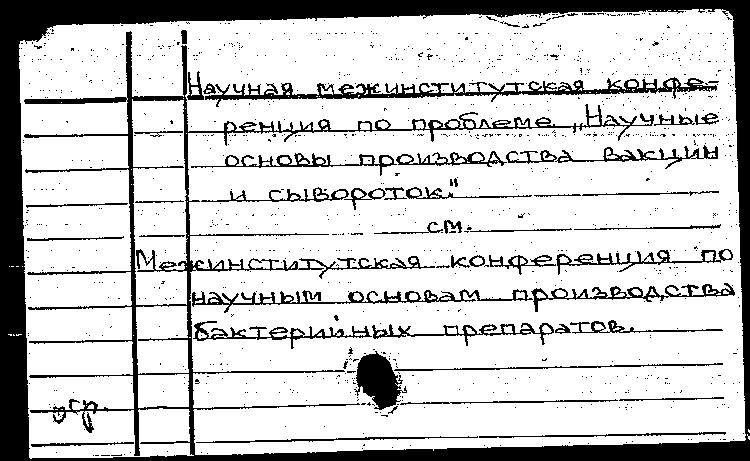 Научная межинститутская конфе-
ренция по проблеме „Научные
основы производства вакцин
и сывороток"
см.
Межинститутская конференция по
научным основам производства
бактерийных препаратов.
огр.